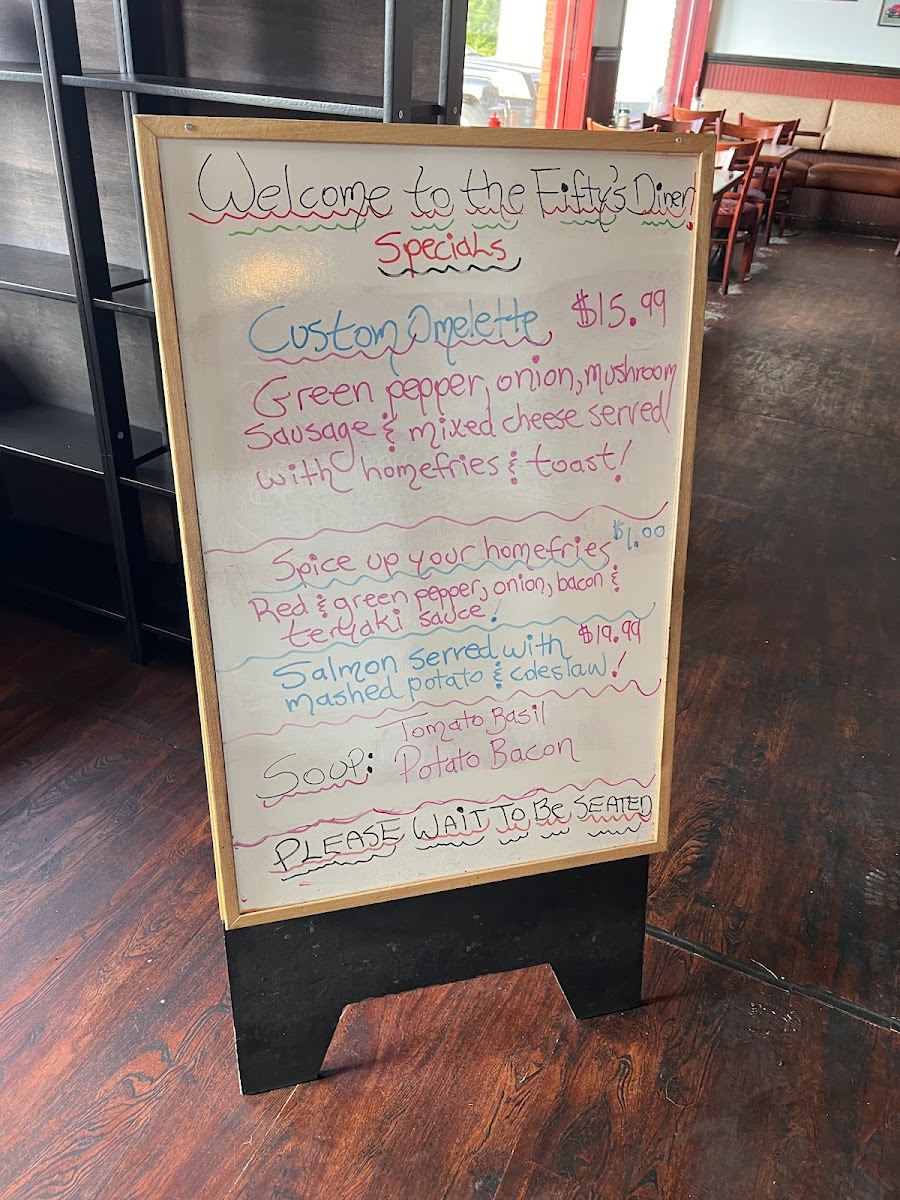 Welcome to the Fifty's Diner!
Specials
Custom Omelette $15.99
Green pepper, onion, mushroom
Sausage & mixed cheese served
with homefries & toast!
Spice up your homefries $1.00
Red & green pepper, onion, bacon &
teryaki sauce!
Salmon serred with $19.99
mashed potato & coleslaw!
Soup: Tomato Basil
Potato Bacon
PLEASE WAIT TO BE SEATED